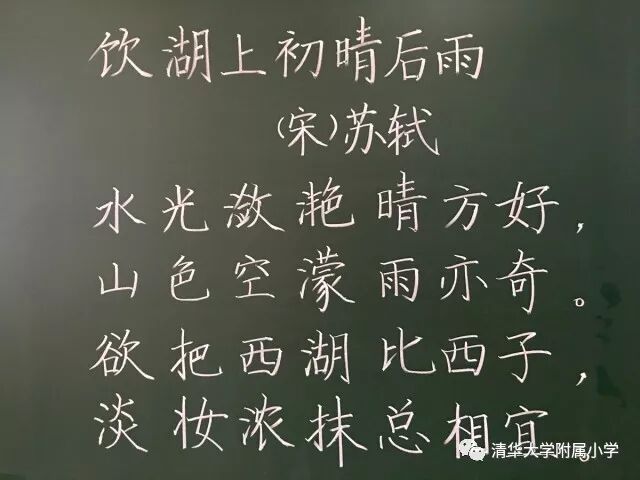 饮湖上初晴后雨
（宋）苏轼
水光潋滟晴方好，
山色空濛雨亦奇。
欲把西湖比西子，
淡妆浓抹总相宜。
清华大学附属小学